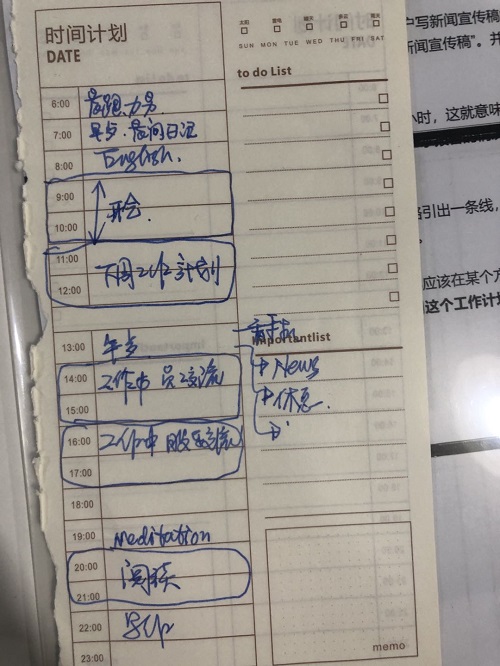 时间计划
DATE
太阳 雷电 晴天 多云 雨天
SUN MON TUE WED THU FRI SAT
to do List
6:00 晨跑.力量
7:00 早点.晨间日记
8:00 English.
9:00
开会.
10:00
11:00
下周工作计划
12:00
13:00 午
14:00 工作中 员工交流
15:00
16:00 工作中
17:00
18:00
19:00 meditation
20:00
阅读
21:00
22:00
23:00
Importantlist
→ News
→ 休息.
memo
户写新闻宣传稿
新闻宣传稿”。并
小时，这就意味
引出一条线，
应该在某个方
这个工作计划